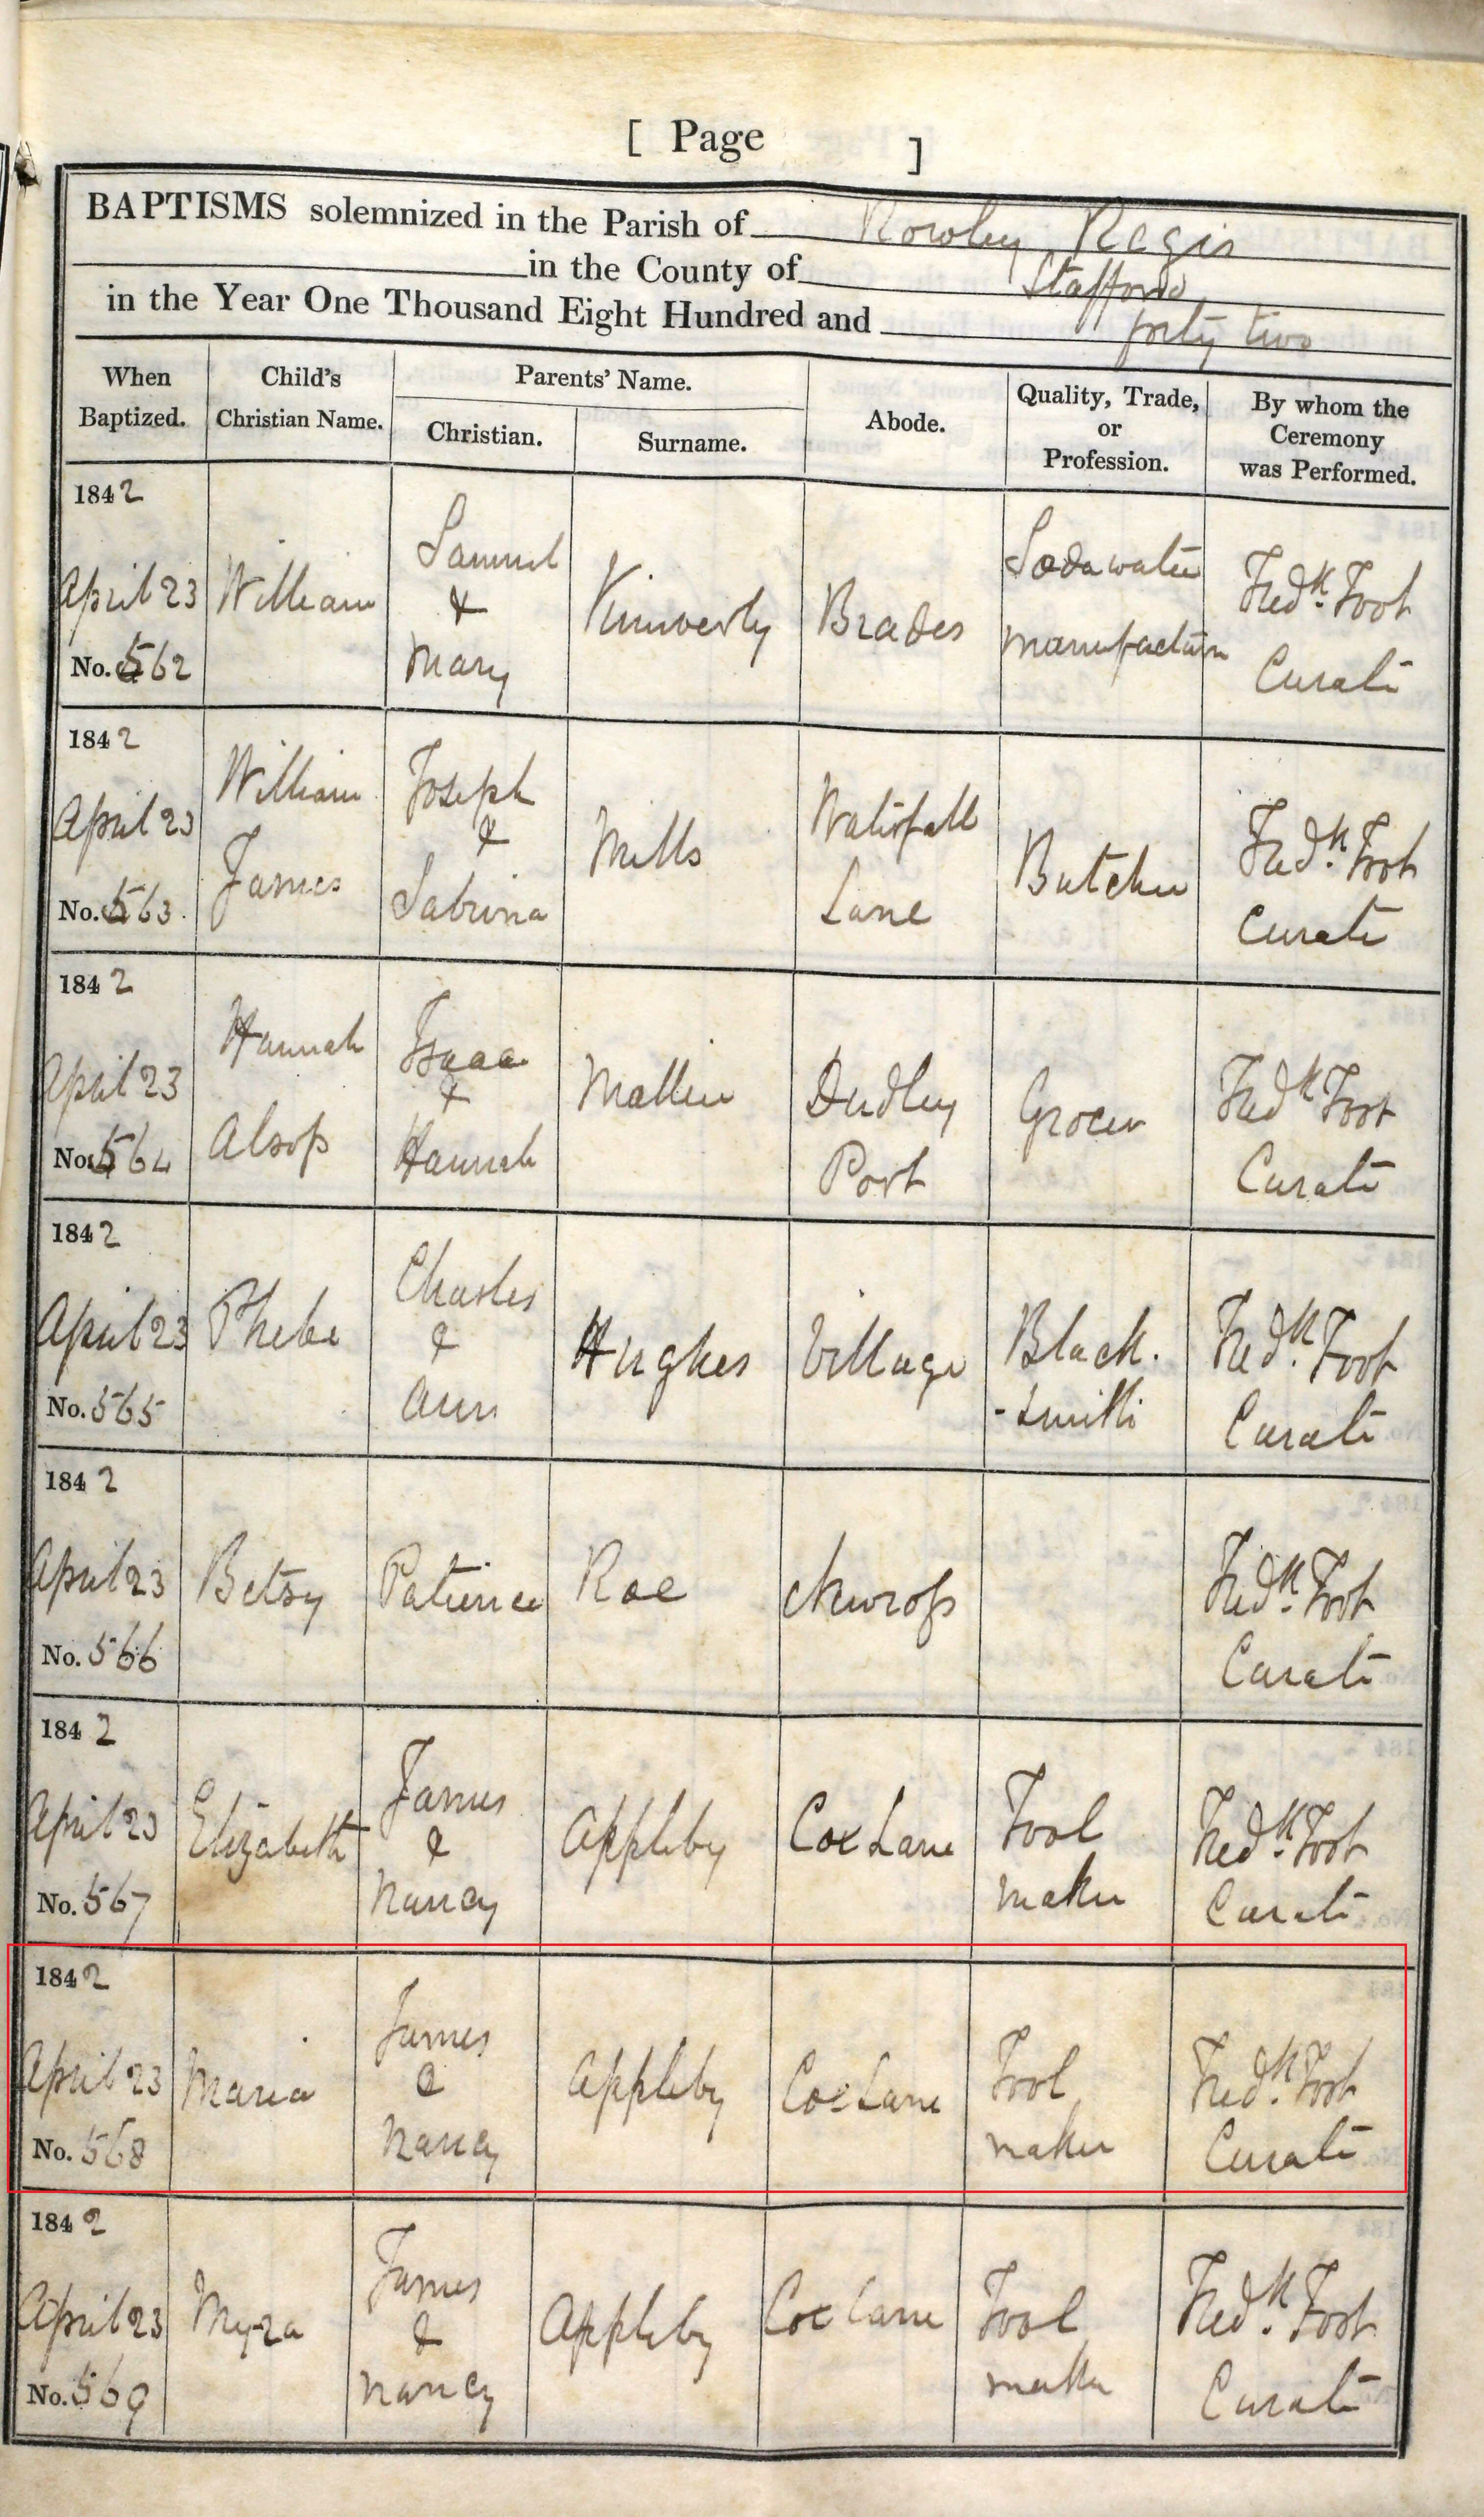 [ Page ]
BAPTISMS solemnized in the Parish of Rowley Regis
in the County of Stafford
in the Year One Thousand Eight Hundred and forty two
When Baptized.
Child's Christian Name.
Parents' Name.
Christian.
Surname.
Abode.
Quality, Trade, or Profession.
By whom the Ceremony was Performed.
1842
April 23
No. 562
William
Samuel
&
Mary
Brades
Sodawater
manufacturer
Fredk. Foot
Curate
1842
April 23
No. 563.
William
James
Joseph
&
Sabrina
Mills
Waterfall
Lane
Butcher
Fredk. Foot
Curate
1842
April 23
No. 564
Hannah
Alsop
Isaac
&
Hannah
Mallin
Dudley
Port
Grocer
Fredk Foot
Curate
1842
April 23
No. 565
Phebe
Charles
&
Ann
Hughes
Village
Black.
-smith
Fredk. Foot
Curate
1842
April 23
No. 566
Betsy
Patience
Roe
Fredk. Foot
Curate
1842
April 23
No. 567
Elizabeth
James
&
Nancy
Appleby
Coe Lane
Tool
maker
Fredk. Foot
Curate
1842
April 23
No. 568
Maria
James
&
Nancy
Appleby
Coe Lane
Tool
maker
Fredk. Foot
Curate
1842
April 23
No. 569
Myra
James
&
Nancy
Appleby
Coe Lane
Tool
maker
Fredk. Foot
Curate